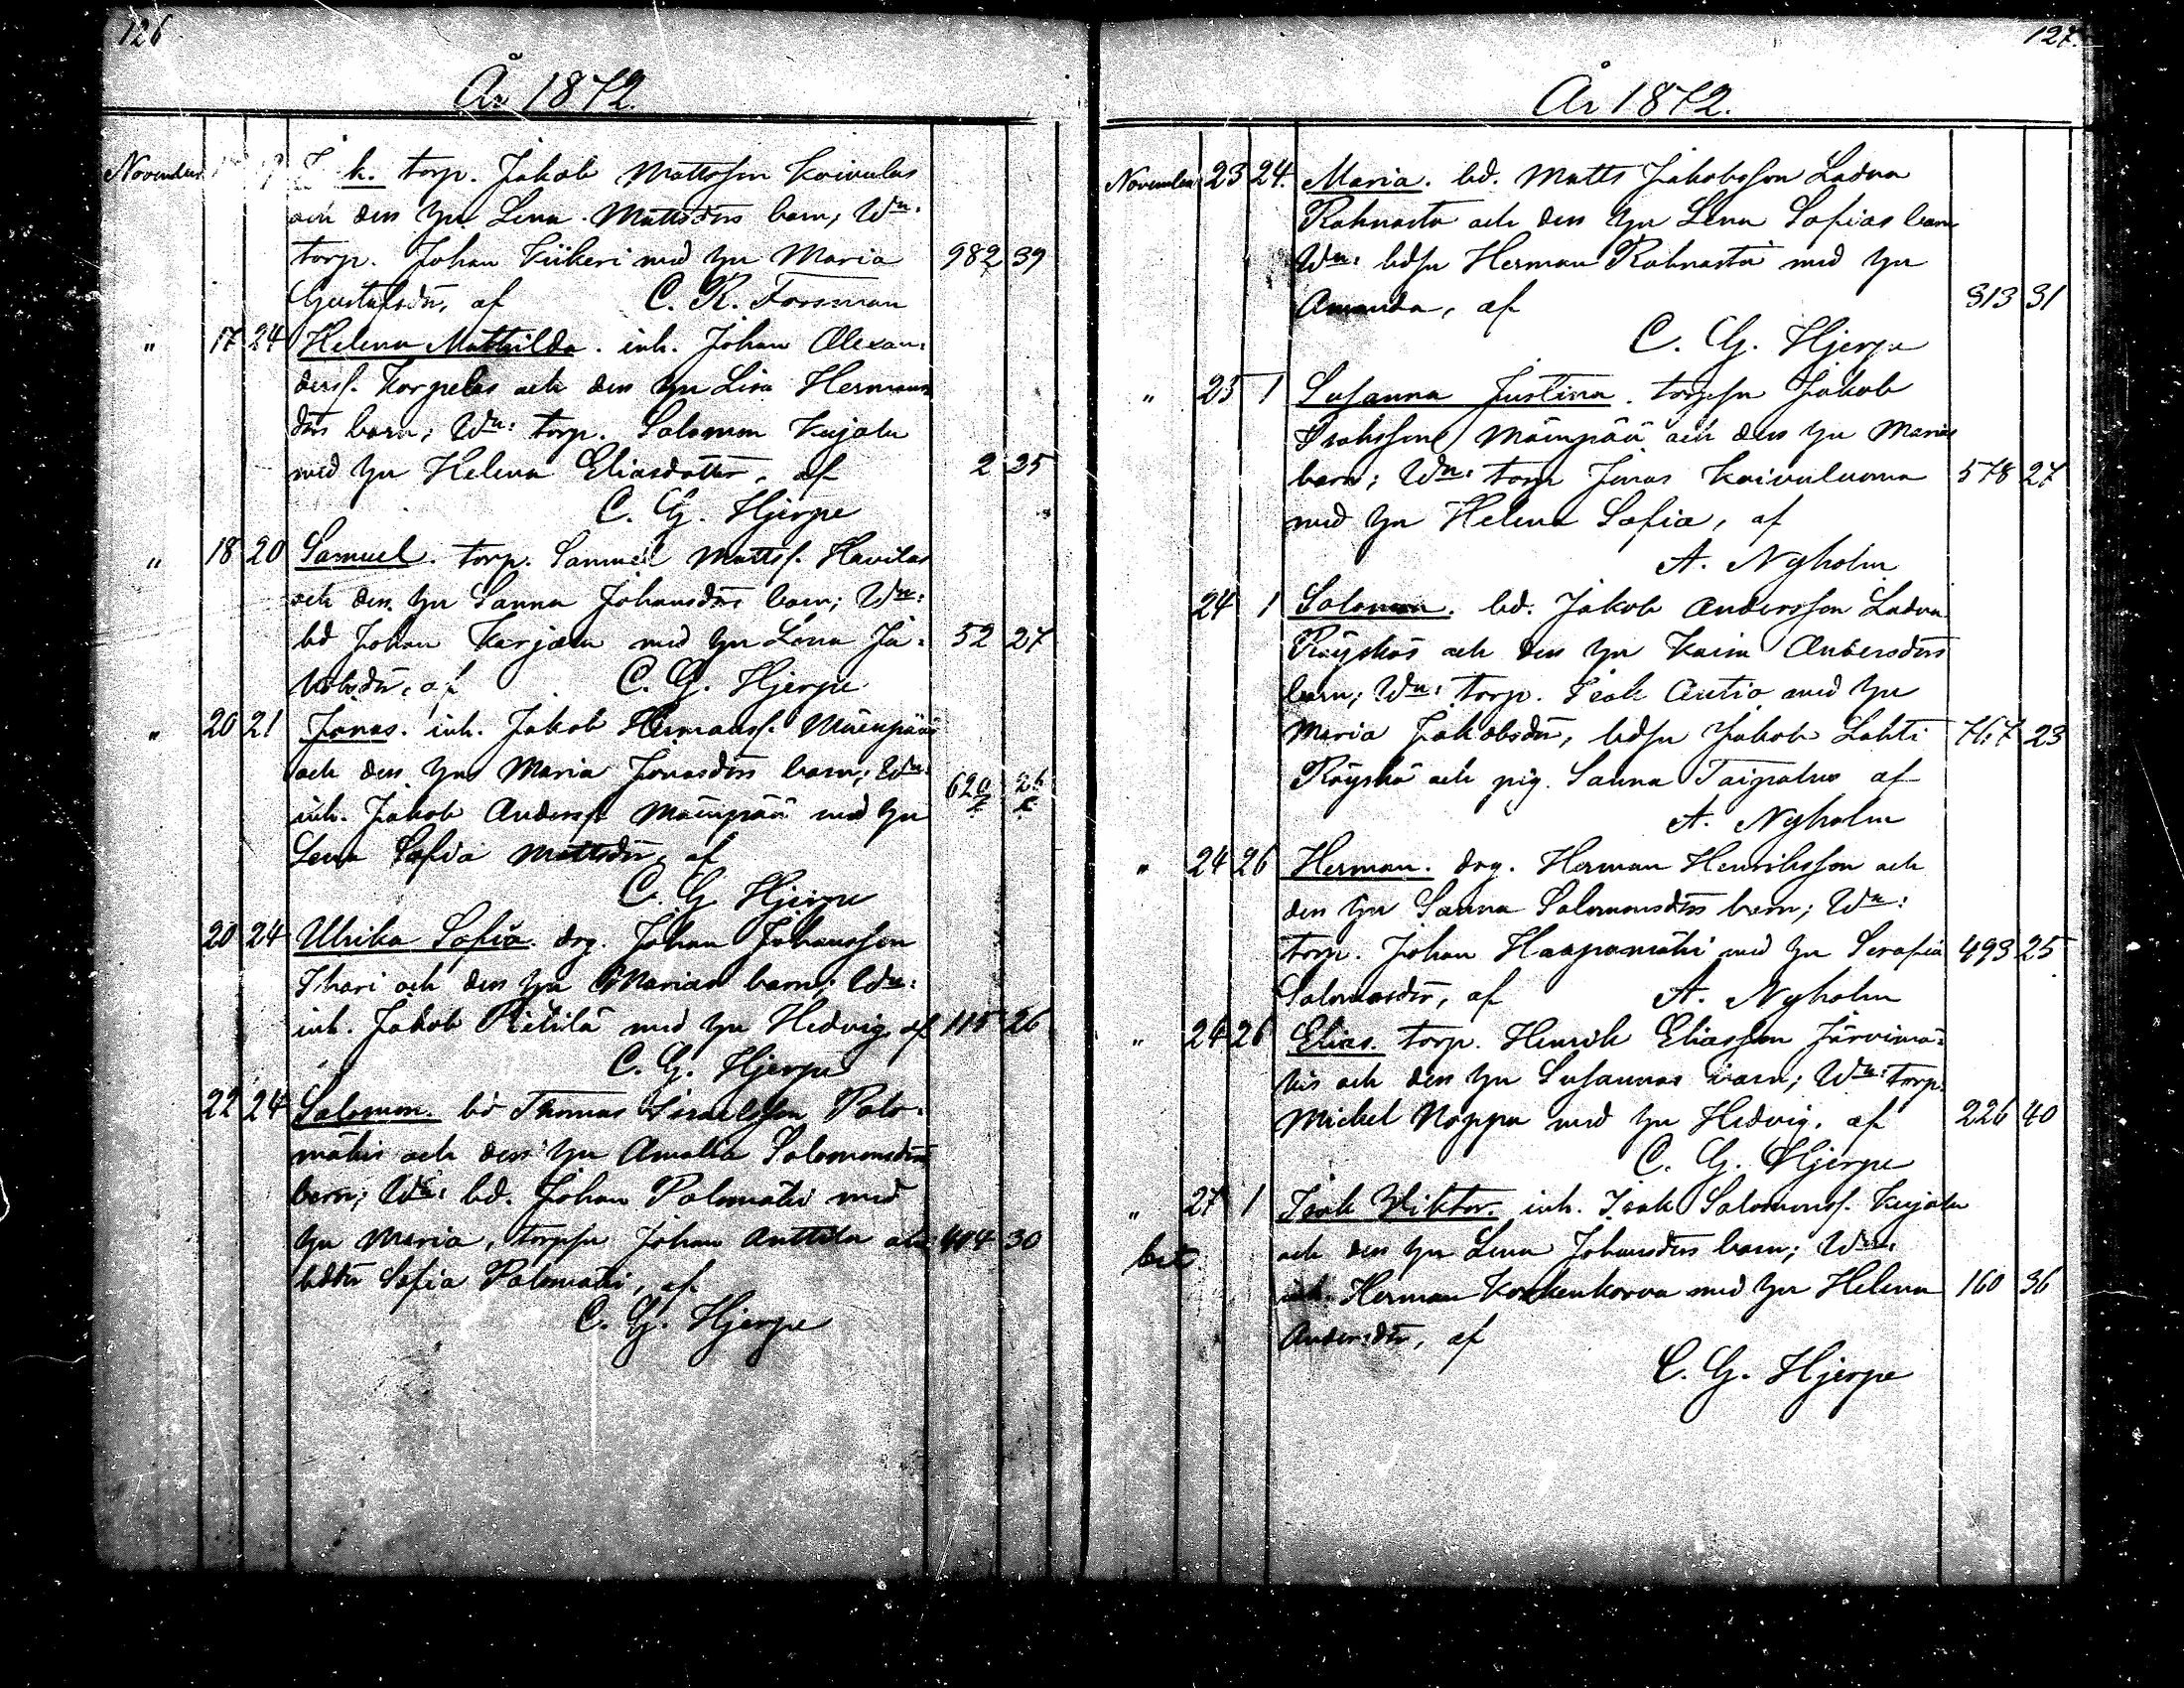 126
År 1872.
November
k. torp. Jakob Mattsson Koivulas
och dess hu Lena Mattsdrs barn; Wn:
torp. Johan Kiikeri med hu Maria 982 39
Gustafsdr, af C. R. Forsman
" 17 24 Helena Mathilda. inh. Johan Alexan=
derss. Korpelas och dess hu Lisa Hermans
drs barn; Wn: torp. Salomon Kujala
med hu Helena Eliasdotter, af 2 25
C. G. Hjerpe
" 18 20 Samuel. torp. Samuel Mattss. Havilas
och dess hu Sanna Johansdrs barn; Wn:
bd Johan Karjalu med hu Lena Ja= 52 27
kobsdr, af C. G. Hjerpe
" 20 21 Jonas. inh. Jakob Hermanss. Mäenpääs
och dess hu Maria Jonasdrs barn; Wn:
inh. Jakob Anderss Mäenpää med hu 620 26
Lena Sofia Mattsdr, af
C. G. Hjerpe
20 24 Ulrika Sofia. drg. Johan Johansson
Ikari och dess hu Marias barn; Wn:
inh. Jakob Pietilä med hu Hedvig, af 115 26
C. G. Hjerpe
22 24 Salomon. bd Thomas Israelsson Palo=
mäkis och dess hu Amalia Salomonsdrs
barn; Wn: bd. Johan Palomäki med
hu Maria, torpsn Johan Anttila och 404 30
bddr Sofia Palomäki, af
C. G. Hjerpe
127.
År 1872.
November 23 24. Maria. bd. Matts Jakobsson Ladva
Rahnasto och dess hu Lena Sofias barn
Wn: bdsn Herman Rahnasto med hu
Amanda, af 313 31
C. G. Hjerpe
" 23 1 Susanna Justina. torpsn Jakob
Isaksson Mäenpää och dess hu Marias
barn; Wn: torp Jonas Koivuluoma 578 27
med hu Helena Sofia, af
A. Nyholm
24 1 Salomon. bd. Jakob Andersson Ladva
Röyskös och dess hu Kaisa Andersdrs
barn; Wn: torp. Isak Antio med hu
Maria Jakobsdr, bdsn Jakob Lahti 767 23
Röyskö och pig. Sanna Taipalus af
A. Nyholm
" 24 26 Herman. drg. Herman Henriksson och
dess hu Sanna Salomonsdrs barn; Wn:
torp. Johan Haapamäki med hu Serafia 493 25
Salomonsdr, af A. Nyholm
" 24 26 Elias. torp. Henrik Eliasson Järvimä=
kis och dess hu Susannas barn; Wn: torp.
Michel Noppa med hu Hedvig, af 226 40
C. G. Hjerpe
" 27 1 Isak Viktor. inh. Isak Salomonss. Kujala
och dess hu Lena Johansdrs barn; Wn:
inh. Herman Koskenkorva med hu Helena 160 36
Andersdr, af
C. G. Hjerpe